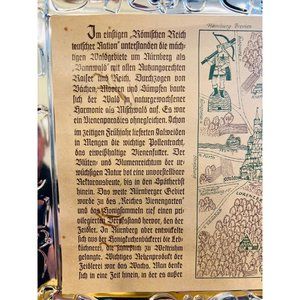 Im einstigen „Römischen Reich
teutscher Nation“ unterstanden die mäch-
tigen Waldgebiete um Nürnberg als
„Bannwald“ mit allen Nutzungsrechten
Kaiser und Reich. Durchzogen von
Bächen, Mooren und Sümpfen baute
sich der Wald in naturgewachsener
Harmonie als Mischwald auf. Es war
ein Bienenparadies ohnegleichen. Schon
im zeitigen Frühjahr lieferten Salweiden
in Mengen die wichtige Pollentracht,
das eiweißhaltige Bienenfutter. Der
Blüten- und Blumenreichtum der ur-
wüchsigen Natur bot eine unvorstellbare
Nektarausbeute, bis in den Spätherbst
hinein. Das weite Nürnberger Gebiet
wurde zu „des Reiches Bienengarten“
und das Honigsammeln rief einen pri-
vilegierten Berufsstand hervor, den der
Zeidler. In Nürnberg aber entwickelte
sich aus der Honigkuchenbäckerei die Leb-
küchnerei, die zu Weltruhm
gelangte. Wichtiges Nebenprodukt der
Zeidlerei war das Wachs. Man denke
sich in eine Zeit hinein, in der es außer
Nürnberg